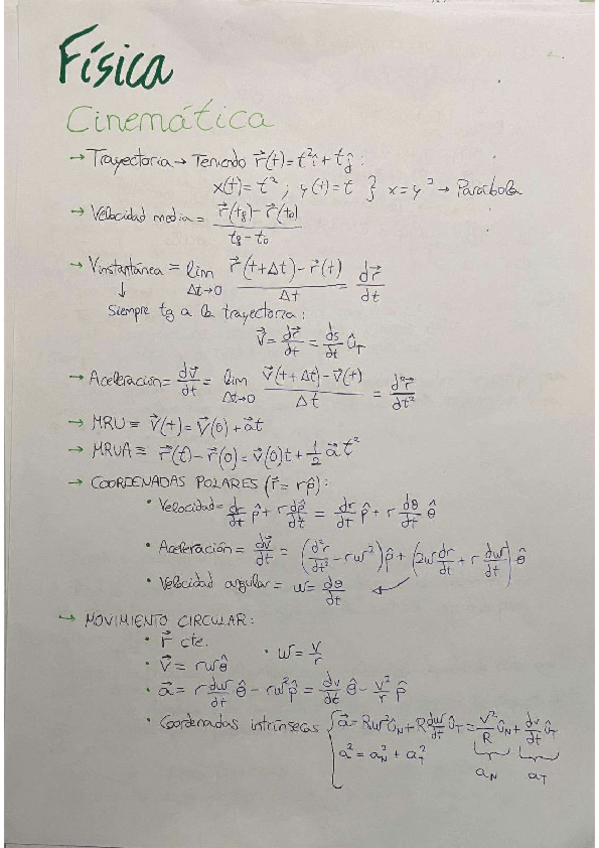 Física
Cinemática
→ Trayectoria → Teniendo r⃗(t) = t²î + tĵ :
x(t) = t² ; y(t) = t } x = y² → Parábola
→ Velocidad media = (r⃗(t_f) - r⃗(t_0)) / (t_f - t_0)
→ Vinstantánea = lim_{Δt→0} (r⃗(t+Δt) - r⃗(t)) / Δt = dr⃗/dt
↓
Siempre tg a la trayectoria :
v⃗ = dr⃗/dt = ds/dt û_T
→ Aceleración = dv⃗/dt = lim_{Δt→0} (v⃗(t+Δt) - v⃗(t)) / Δt = d²r⃗/dt²
→ MRU ≡ v⃗(t) = v⃗(0) + a⃗t
→ MRUA ≡ r⃗(t) - r⃗(0) = v⃗(0)t + 1/2 a⃗t²
→ COORDENADAS POLARES (r⃗ = rρ̂) :
• Velocidad = dr/dt ρ̂ + r dρ̂/dt = dr/dt ρ̂ + r dθ/dt θ̂
• Aceleración = dv⃗/dt = (d²r/dt² - rω²)ρ̂ + (2ω dr/dt + r dω/dt) θ̂
• Velocidad angular = ω = dθ/dt
→ MOVIMIENTO CIRCULAR :
• r⃗ cte. • ω = v/r
• v⃗ = rωθ̂
• a⃗ = r dω/dt θ̂ - rω²ρ̂ = dv/dt θ̂ - v²/r ρ̂
• Coordenadas intrínsecas { a⃗ = Rω²û_N + R dω/dt û_T = v²/R û_N + dv/dt û_T
a² = a_N² + a_T²
a_N a_T